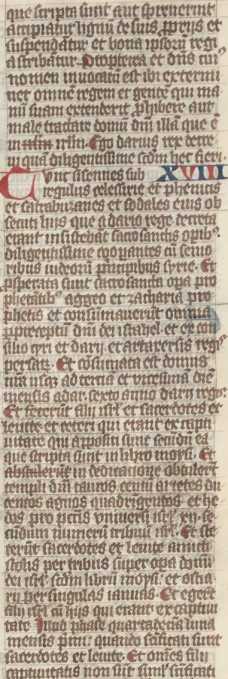 que scripta sunt aut spreuerint
accipiatur lignū de suis ꝓprijs et
suspendātur et bona ipsoꝝ regi
ascribātur Propterea et dñs cui
nomen inuocatū est ibi extermi
net omnē regem et gentē qui ma
nū suam extenderit ꝓhibere aut
male tractare domū dñi illā que ē
in irlm Ego darius rex decre
ui quā diligentissime scdm hec fieri
Tunc sisennes sub XVIII
regulus celessirie et phenicis
et satrabuzanes et sodales eius ob
secuti hijs que a dario rege decreta
erant insistebāt sacrosanctis opibꝰ
diligentissime cooꝑantes cū senio
ribus iudeoꝝ principibus syrie Et
prosperata sunt sacrosancta opa pro
phetātibꝰ aggeo et zacharia pro
phetis et consūmauerūt omnia
per preceptū dñi dei israhel et ex con
silio cyri et darij et artaxersis regis
persarū Et cōsūmata est domus
nra usqꝫ ad tercia et vicesimā diē
mensis adar sexto anno darij regis
Et fecerūt filij isrl et sacerdotes et
leuite et ceteri qui erant ex capti
uitate qui appositi sunt scdm ea
que scripta sunt in libro moysi Et
obtulerūt in dedicatione
templi dñi tauros centū arietes du
centos agnos quadringentos et he
dos pro pctis vniuersi isrl xij se
cūdum numerū tribuū isrl Et ste
terūt sacerdotes et leuite amicti
stolis per tribus super opa domi
dei isrl scdm librū moysi et ostia
rij per singulas ianuas Et egerūt
filij isrl cū hijs qui erant ex captiui
tate illud phase quartadecīa luna
mensis primi quando scificati sunt
sacerdotes et leuite Et omēs filij
captiuitatis non sūt simul scificati